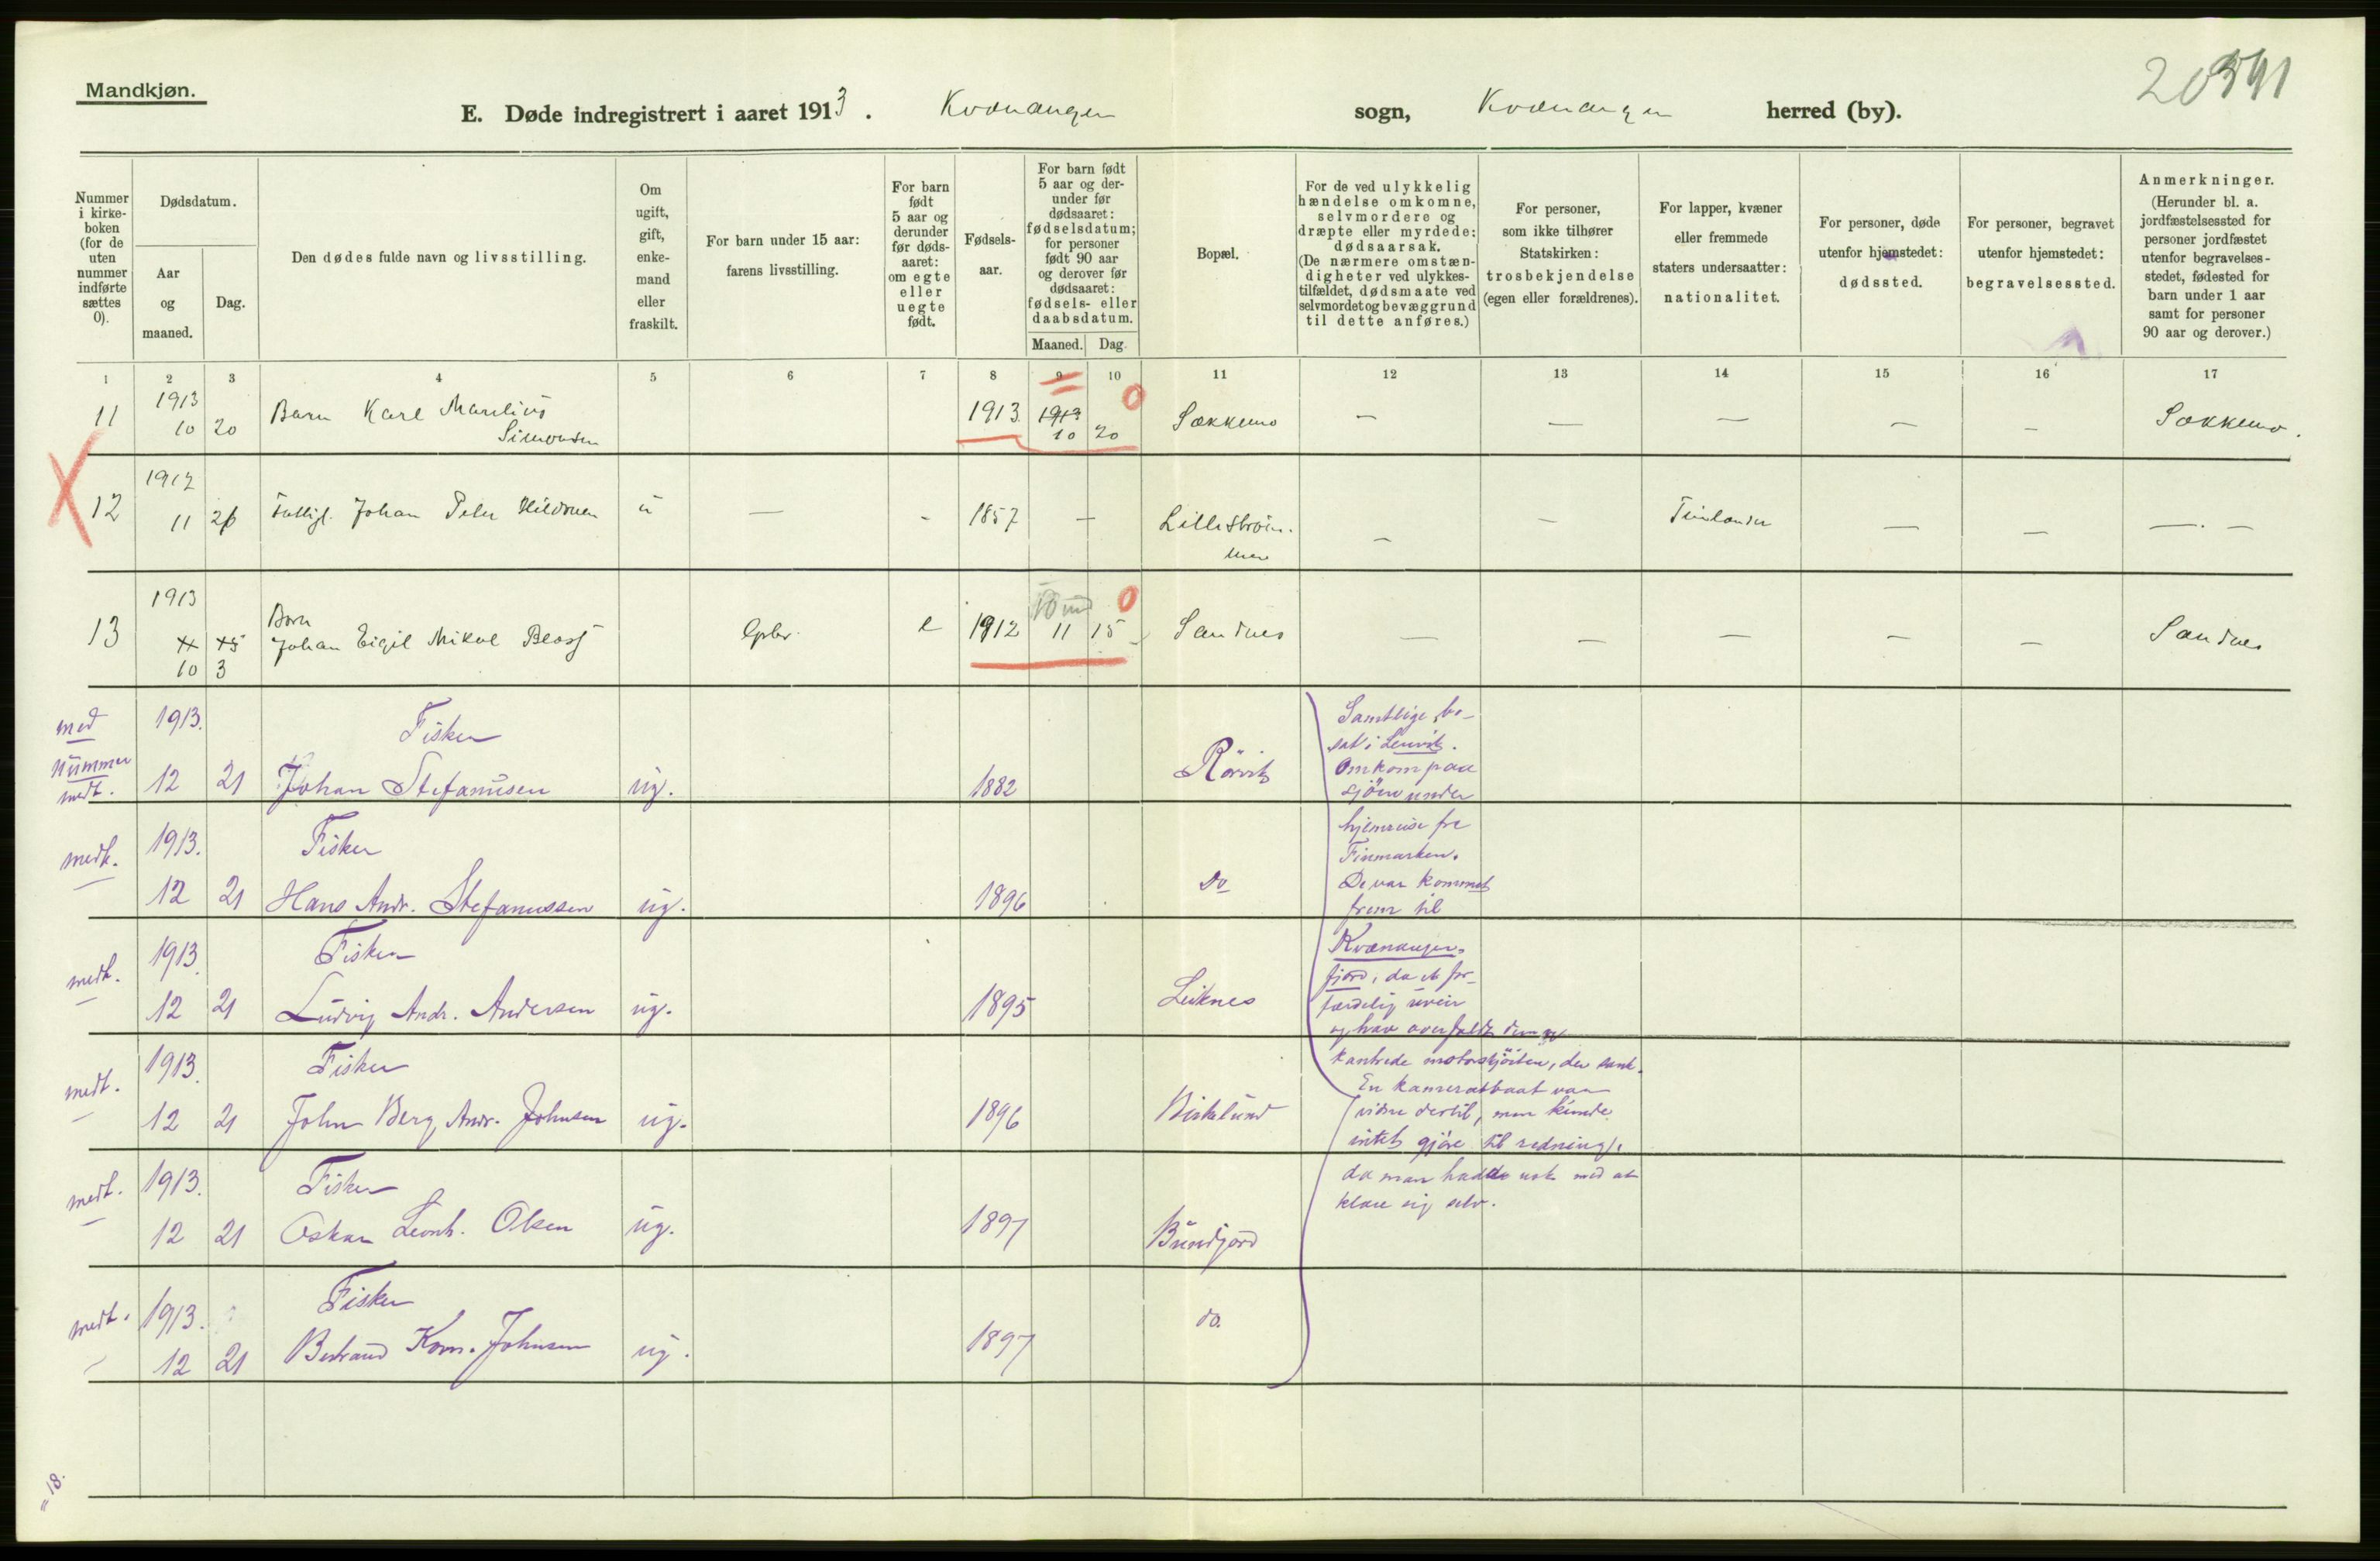 Mandkjøn.
E. Døde indregistrert i aaret 1913. Kvænangen sogn, Kvænangen herred (by).
Nummer
i kirke-
boken
(for de
uten
nummer
indførte
sættes
0).
Dødsdatum.
Aar
og
maaned.
Dag.
Den dødes fulde navn og livsstilling.
Om
ugift,
gift,
enke-
mand
eller
fraskilt.
For barn under 15 aar:
farens livsstilling.
For barn
født
5 aar og
derunder
før døds-
aaret:
om egte
eller
uegte
født.
Fødsels-
aar.
For barn født
5 aar og der-
under før
dødsaaret:
fødselsdatum;
for personer
født 90 aar
og derover før
dødsaaret:
fødsels- eller
daabsdatum.
Maaned. Dag.
Bopæl.
For de ved ulykkelig
hændelse omkomne,
selvmordere og
dræpte eller myrdede:
dødsaarsak.
(De nærmere omstæn-
digheter ved ulykkes-
tilfældet, dødsmaate ved
selvmordet og bevæggrund
til dette anføres.)
For personer,
som ikke tilhører
Statskirken:
trosbekjendelse
(egen eller forældrenes).
For lapper, kvæner
eller fremmede
staters undersaatter:
nationalitet.
For personer, døde
utenfor hjemstedet:
dødssted.
For personer, begravet
utenfor hjemstedet:
begravelsessted.
Anmerkninger.
(Herunder bl. a.
jordfæstelsessted for
personer jordfæstet
utenfor begravelses-
stedet, fødested for
barn under 1 aar
samt for personer
90 aar og derover.)
1 2 3 4 5 6 7 8 9 10 11 12 13 14 15 16 17
11 1913 10 20 Barn Karl Marelius Simonsen 1913 1913 10 20 0 Sækkemo — — — — — Sækkemo.
12 1912 11 Fattigl. Johan Peter u — - 1857 — Lillestrøm- — — Finlænder — — — . —
13 1913 11 15 10 3 Barn Johan Eigil Mikal Gbr. e 1912 11 15 10 md 0 Sandnes — — — — — Sandnes
med
nummer
medt. 1913. 12 21 Fisker Johan Stefanusen ug. 1882 Rörvik
medt. 1913. 12 21 Fisker Hans Andr. Stefanussen ug. 1896 do
medt. 1913. 12 21 Fisker Ludvig Andr. Andersen ug. 1895 Leiknes
medt. 1913. 12 21 Fisker John Berg Andr. Johnsen ug. 1896 Birkelund
medt. 1913. 12 21 Fisker Oskar Leonh. Olsen ug. 1897 Bundjord
medt. 1913. 12 21 Fisker Bertrand Korn. Johnsen ug. 1897 do.
Samtlige bo-
sat i Lenvik.
Omkom paa
sjöen under
hjemreise fra
Finmarken.
De var kommet
frem til
Kvænangen-
fjord, da et for-
færdelig uveir
og hav overfaldt dem og
kantrede motorskjöiten, der sank.
En kameratbaat var
vidne dertil, men kunde
intet gjöre til redning,
da man hadde nok med at
klare sig selv.
" 18.